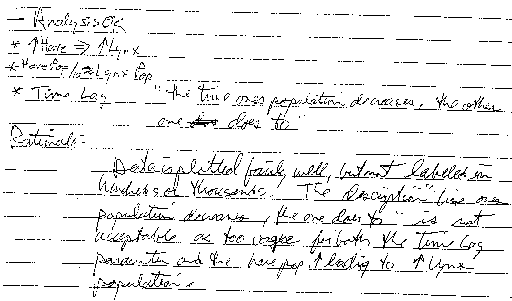 - Analysis OK
* ↑ Hare ⇒ ↑ Lynx
* Hare Pop / Lynx Pop
* Time Lag "the time ones population decreases, the other
one does to"
Rationale:
Data is plotted fairly well, but not labeled in
hundreds or thousands. The description "time ones
population decreases, the one does to" is not
acceptable as too vague for both the time lag
parameter and the hare pop ↑ leading to ↑ lynx
population.